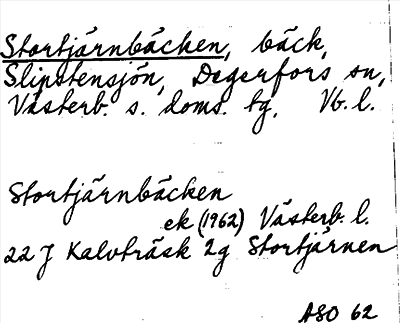 Stortjärnbäcken, bäck,
Slipstensjön, Degerfors sn,
Västerb. s. doms. tg, Vb. l.
Stortjärnbäcken
ek (1962) Västerb. l.
22 J Kalvträsk 2g Stortjärnen
ASO 62